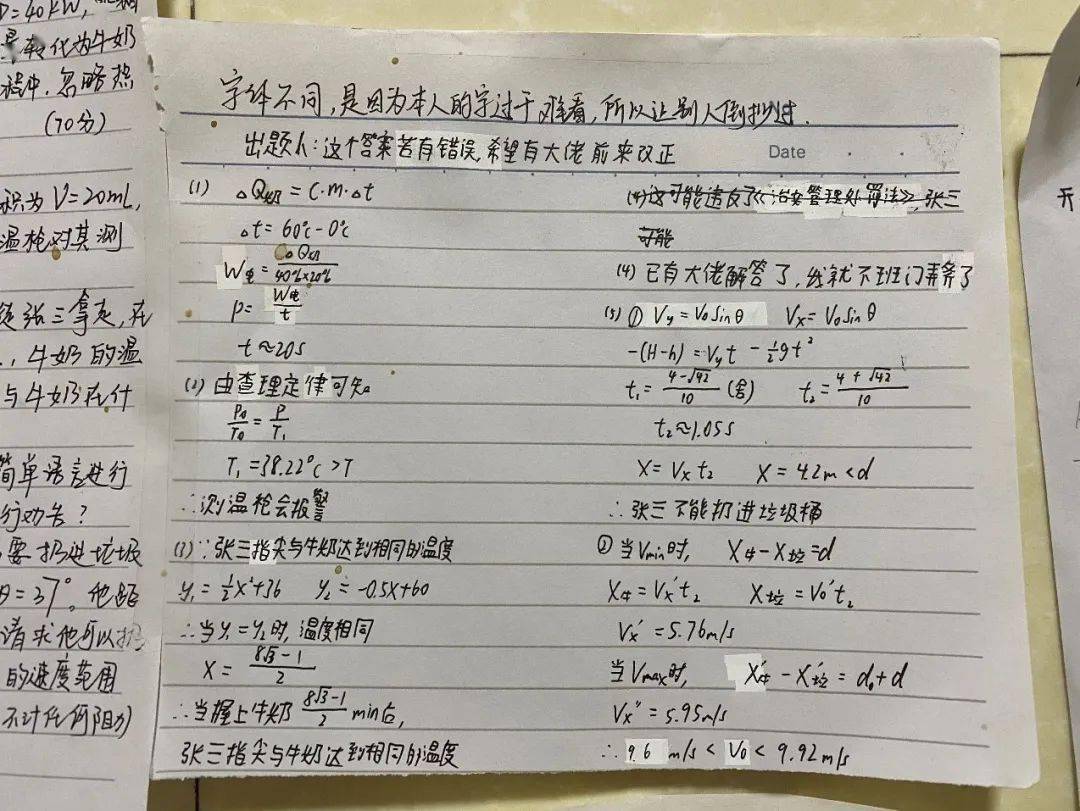 P=40kW,
转化为牛奶
程中，忽略热
(70分)
积为V=20mL,
温枪对其测
张三拿走，在
牛奶的温
与牛奶在什
简单语言进行
行劝告？
要扔进垃圾
θ=37°。他距
请求他可以扔
的速度范围
不计任何阻力)
字体不同，是因为本人的字过于难看，所以让别人倒抄过.
出题人:这个答案若有错误,希望有大佬前来改正
Date
(1) △Q奶=C·m·△t
△t=60℃-0℃
W电=△Q奶/40%×20%
P=W电/t
t≈20s
(2) 由查理定律可知
P0/T0=P/T1
T1=38.22℃>T
∴测温枪会报警
(3) ∵张三指尖与牛奶达到相同的温度
y1=½x²+36 y2=-0.5x+60
∴当y1=y2时,温度相同
X=(8√3-1)/2
∴当握上牛奶(8√3-1)/2 min后,
张三指尖与牛奶达到相同的温度
(4)这可能违反了《治安管理处罚法》,张三
可能
(4) 已有大佬解答了，我就不班门弄斧了
(5) ① Vy=V0sinθ Vx=V0sinθ
-(H-h)=Vyt-½gt²
t1=(4-√42)/10(舍) t2=(4+√42)/10
t2≈1.05s
X=Vxt2 X=4.2m<d
∴张三不能扔进垃圾桶
② 当Vmin时, X牛-X垃=d
X牛=Vx't2 X垃=V0't2
Vx'=5.76m/s
当Vmax时, X牛'-X垃'=d0+d
Vx"=5.95m/s
∴9.6m/s<V0<9.92m/s
开